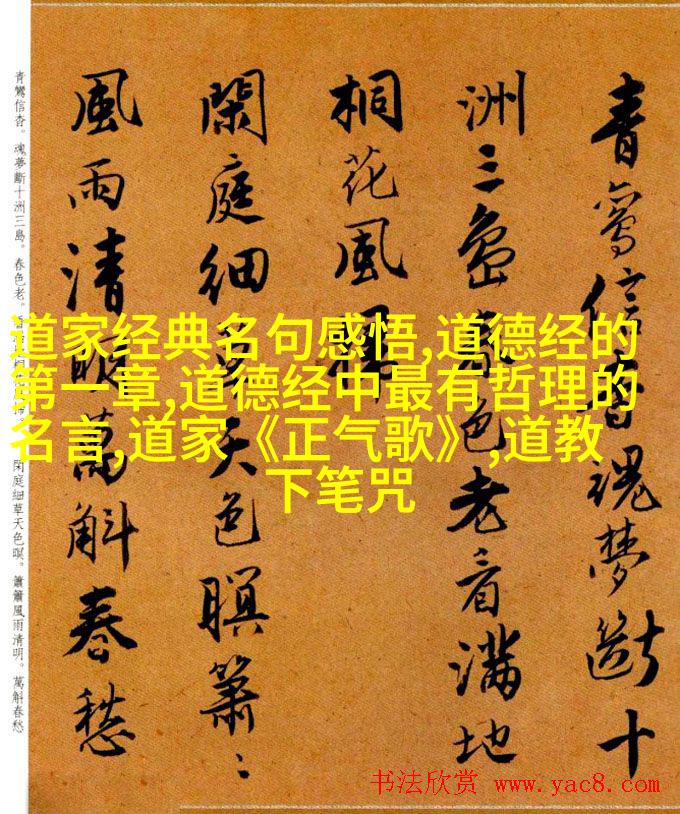 青鸞信杳魂夢斷十
洲三島春色老香滿地
桐花風
閑庭細草天色瞑簫〻
風雨清明萬斛春愁
青鸞信杳。魂夢斷十洲三島。春色老。
閑庭細草天色暝。簫簫風雨清明。萬斛春愁
道家经典名句感悟,道德经的
第一章,道德经中最有哲理的
名言,道家《正气歌》,道教
下笔咒
书法欣赏 www.yac8.com